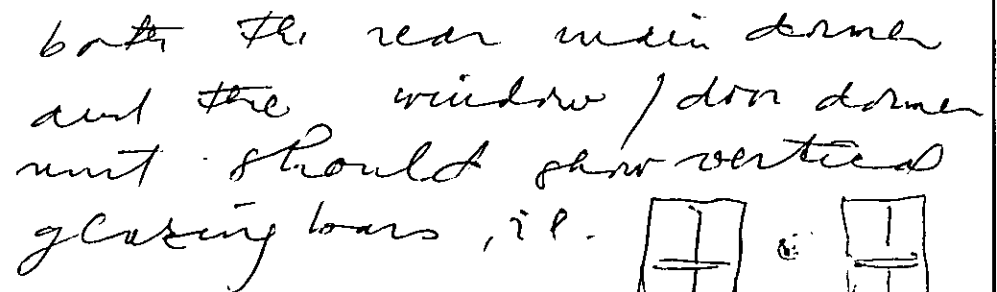 both the rear main dormer
and the window / door dormer
unit should show vertical
glazing bars, i.e.